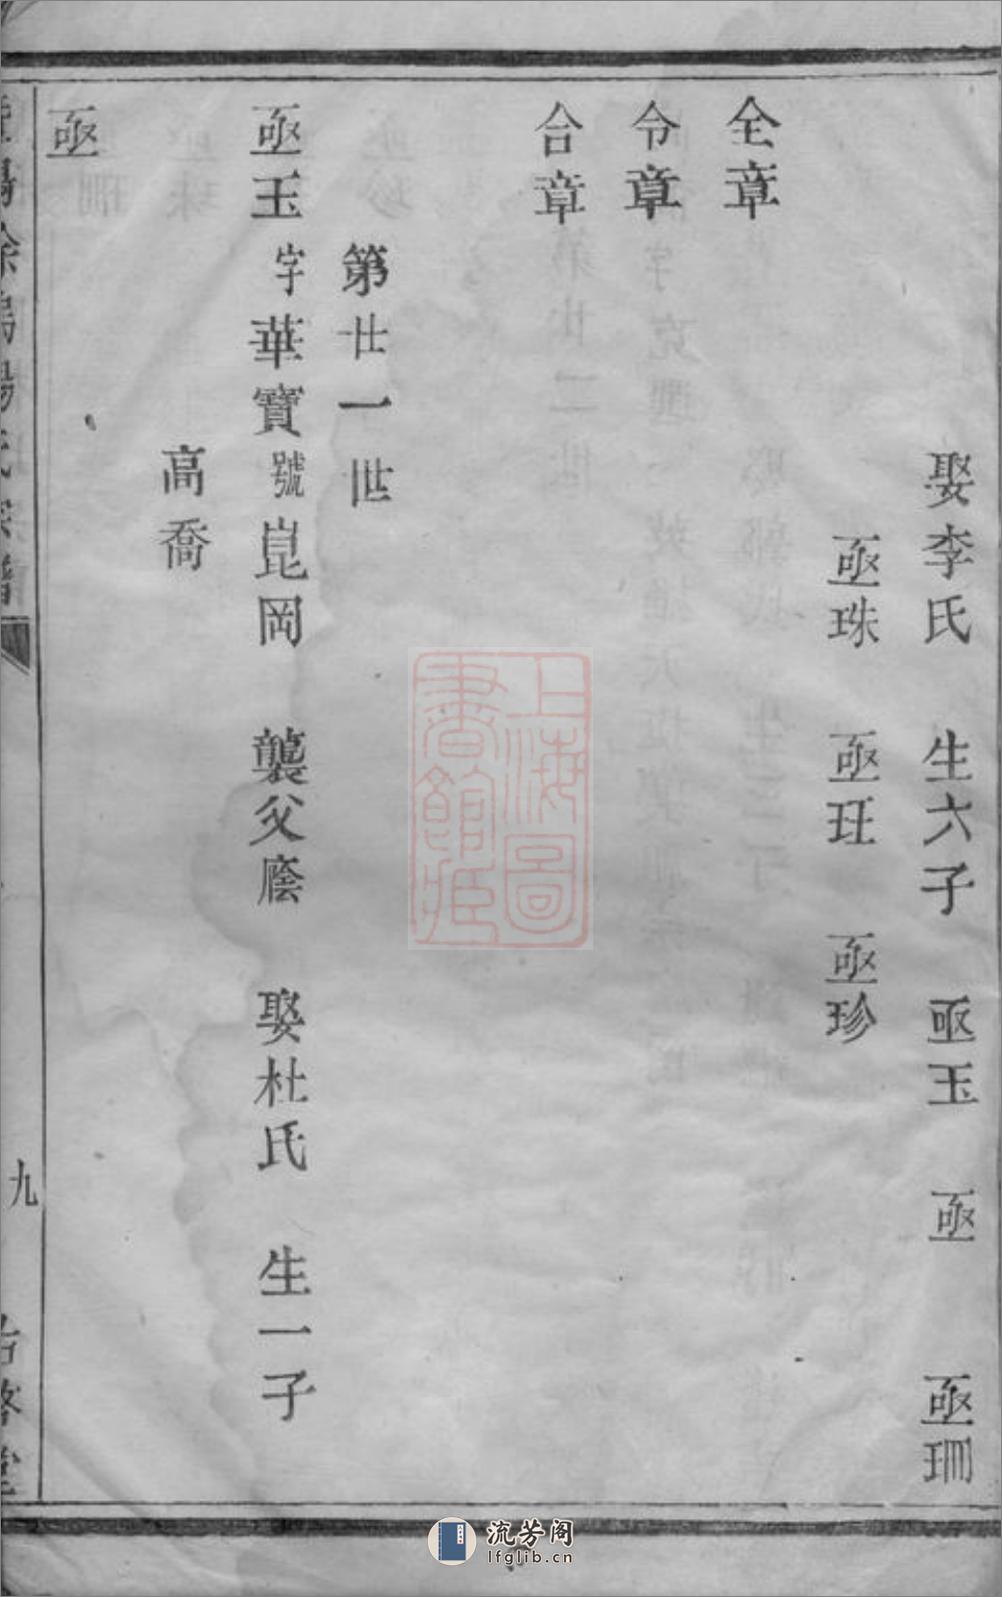 娶李氏　生六子　亟玉　亟　亟珊
亟珠　亟玨　亟珍
全章
令章
合章
第廿一世
亟玉字華寶號崑岡　襲父廕　娶杜氏　生一子
高喬
亟
九
上海圖書館藏
流芳阁
lfglib.cn